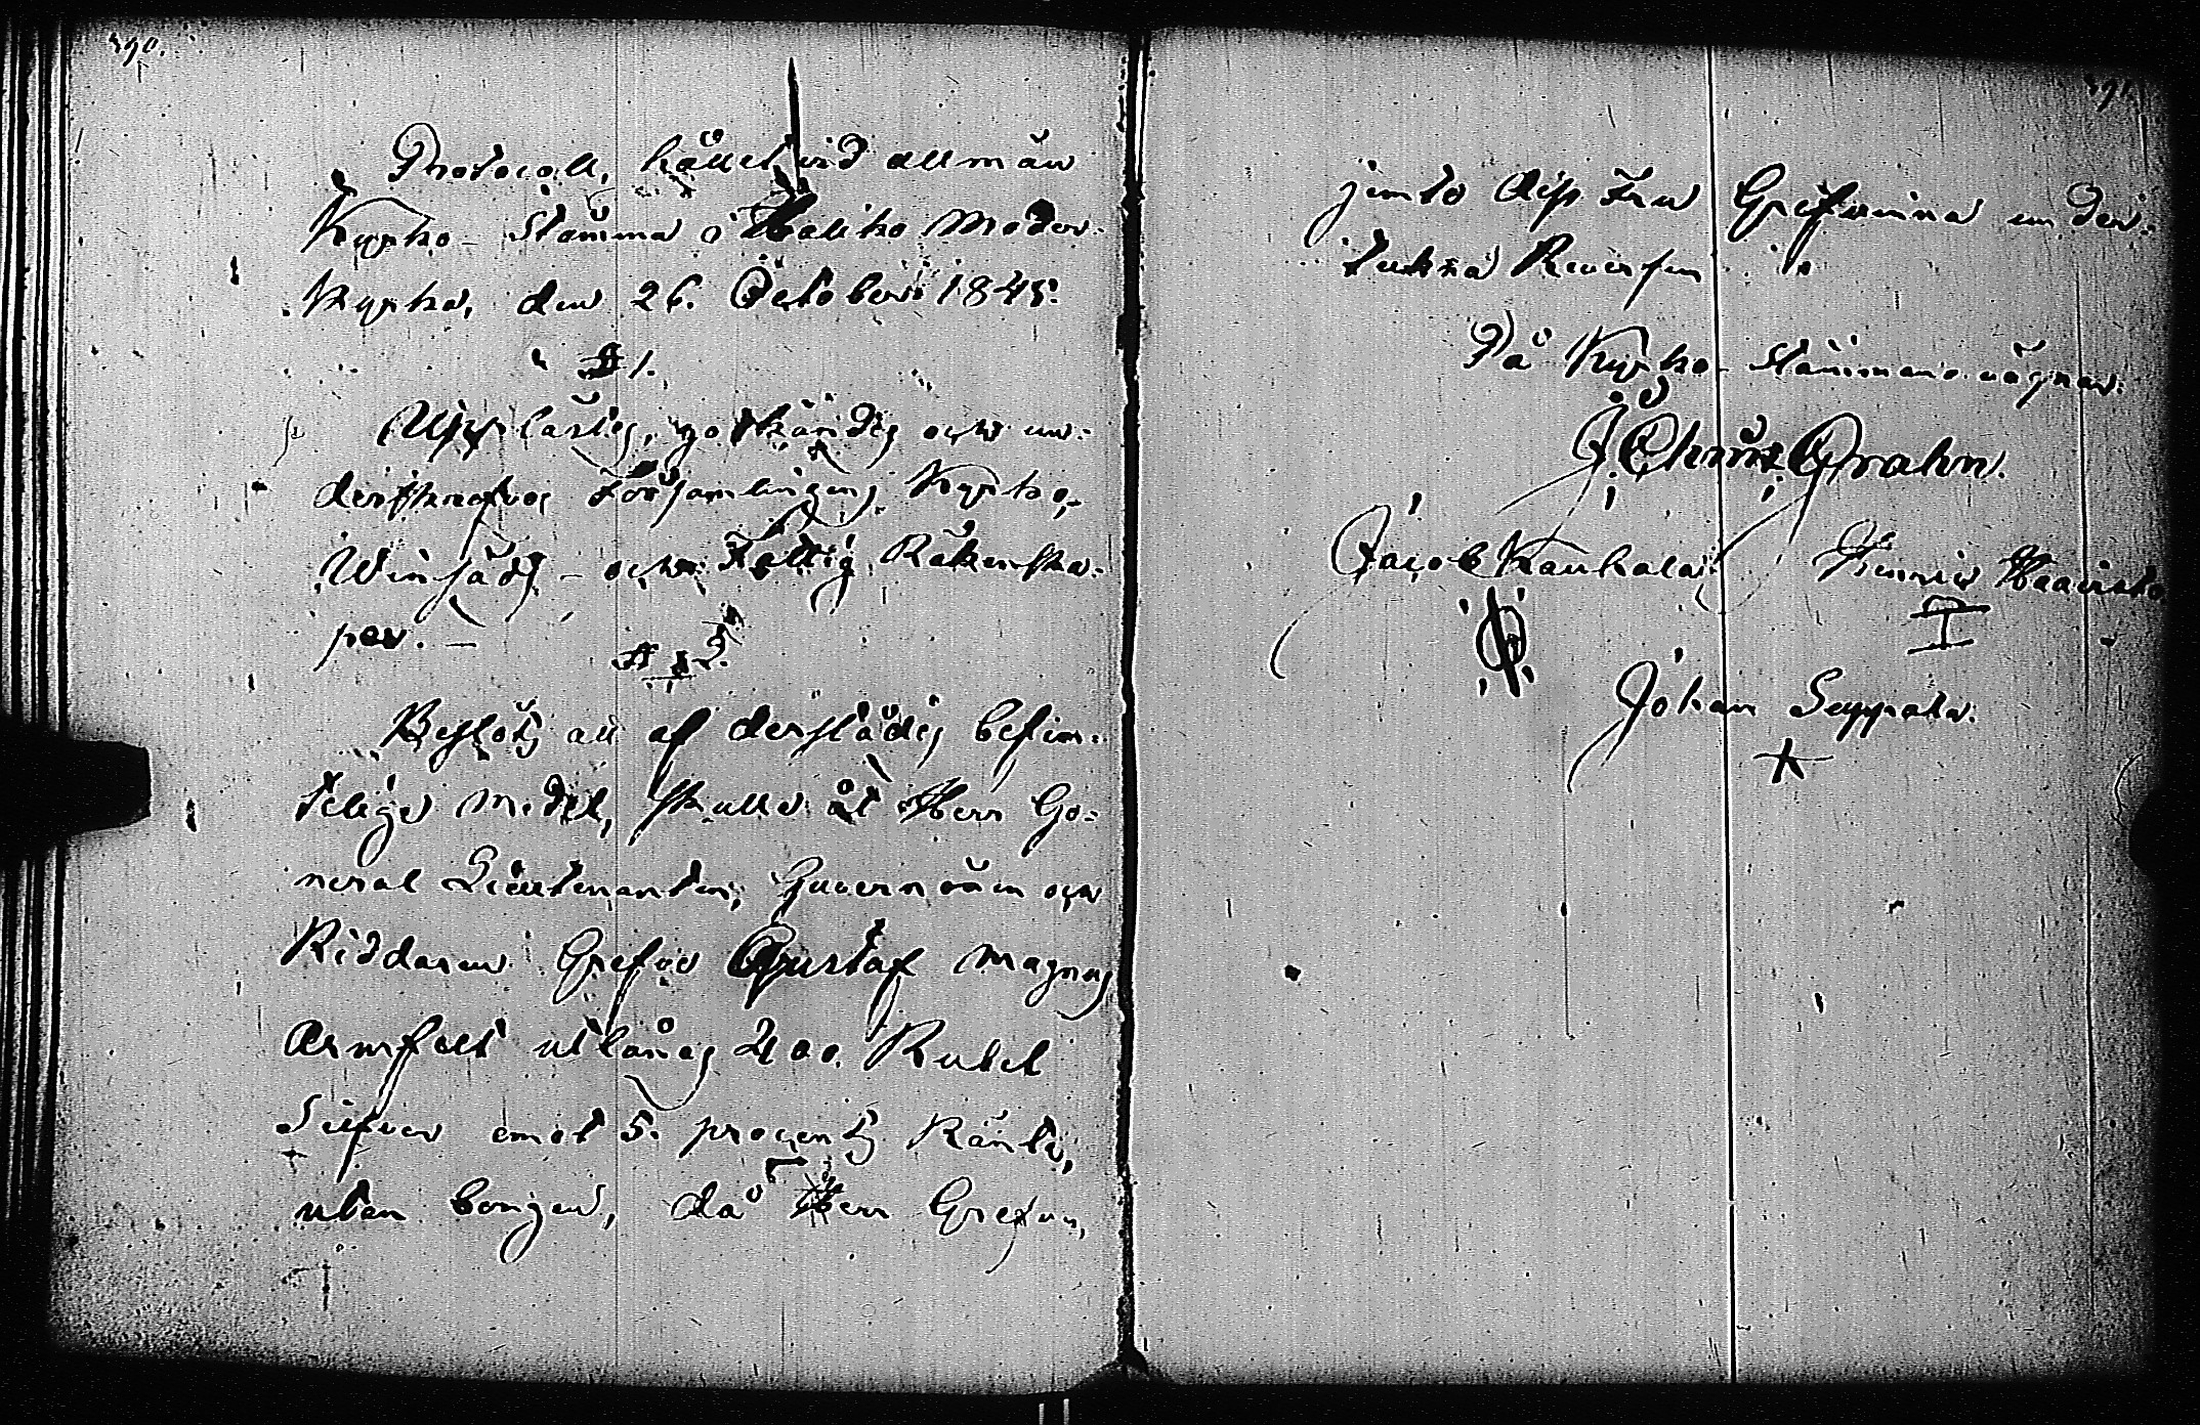 190.
Protocoll, hållet vid allmän
Kyrko-Stämma i Haliko Moder-
kyrka, den 26. October 1845.
§ 1.
Upplästes, godkändes och un-
dertecknades Församlingens Kyrko-,
Winsäds- och Fattig Räkenska-
per. —
§ 2.
Beslöts att af derstädes befin-
telige medel, skulle åt Herr Ge-
neral Lieutenanten, Guvernören och
Riddaren Grefve Gustaf Magnus
Armfelt utlånas 200. Rubel
Silfver emot 5. procents Ränta,
utan borgen, då Herr Grefven,
191.
jemte dess Fru Grefvinna un der-
tecknar Reversen
På Kyrko-Stämmans vägnar:
J. Chr: Grahn.
Jacob Kaukala
Haavisto
Johan Seppälä.